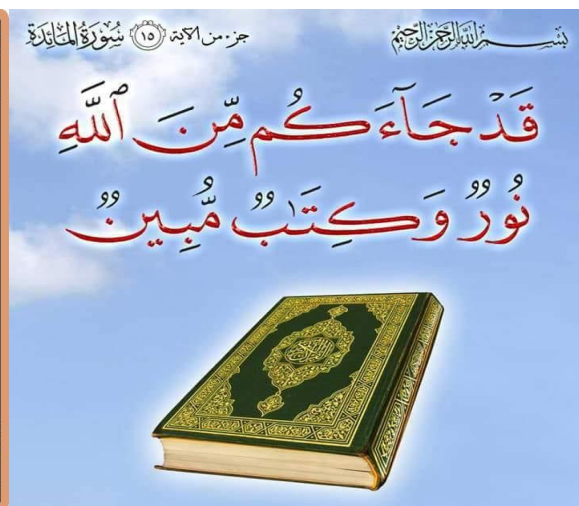 بسم الله الرحمن الرحيم
جزء من الآية ١٥ سُورَةُ المَائِدَةِ
قَدْ جَآءَكُم مِّنَ ٱللَّهِ
نُورٌ وَكِتَٰبٌ مُّبِينٌ
القرآن الكريم